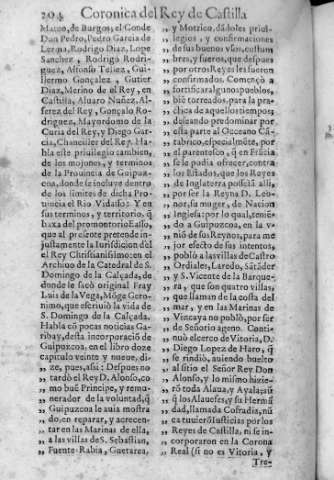 204 Coronica del Rey de Castilla
Mateo, de Burgos, el Conde
Don Pedro, Pedro Garcia de
Lerma, Rodrigo Diaz, Lope
Sanchez, Rodrigo Rodri-
guez, Alfonso Tellez, Gui-
llermo Gonçalez, Gutier
Diaz, Merino de el Rey, en
Castilla, Aluaro Nuñez, Al-
ferez del Rey, Gonçalo Ro-
driguez, Mayordomo de la
Curia del Rey, y Diego Gar-
cia, Chanciller del Rey. Ha-
bla este priuilegio tambien,
de los mojones, y terminos
de la Prouincia de Guipuz-
coa, donde se incluye dentro
de los limites de dicha Pro-
uincia el Rio Vidasso: Y en
sus terminos, y territorio, q̃
baxa del promontorio Easso,
que al presẽte pretende in-
justamente la Iurisdicion del
el Rey Christianissimo: en el
Archiuo de la Catedral de S.
Domingo de la Calçada, de
donde se sacò original Fray
Luis de la Vega, Mõge Gero-
nimo, que escriuiò la vida de
S. Domingo de la Calçada.
Habla cõ pocas noticias Ga-
ribay, desta incorporació de
Guipuzcoa, en el libro doze
capitulo veinte y nueue, di-
ze, pues, assi: Despues no
„ tardò el Rey D. Alonso, co
„ mo buẽ Principe, y remu-
„ nerador de la voluntad, q̃
„ Guipuzcoa le auia mostra
„ do, en reparar, y acrecen-
„ tar en las Marinas de ella,
„ a las villas de S. Sebastian,
„ Fuente-Rabia, Guetarea,
„ y Motrico, dãdoles priui-
„ legios y confirmaciones
„ de sus buenos vsos, costum
„ bres, y fueros, que despues
„ por otros Reyes les fueron
„ confirmados. Començò a
„ fortificar algunos pueblos,
„ biẽ torreados, para la pra-
„ ctica de aquellos tiempos;
„ deseando predominar por
„ esta parte al Occeano Cã-
„ tabrico, especialmẽte, por
„ el parentesco, q̃ en Frãcia
„ se le podia ofrecer, contra
„ los Estados, que los Reyes
„ de Inglaterra posseìa alli,
„ por ser la Reyna D. Leo-
„ nor, su muger, de Nacion
„ Inglesa: por lo qual, teniẽ-
„ do a Guipuzcoa, en la v-
„ niõ de sus Reynos, para me
„ jor efecto de sus intentos,
„ poblò a las villas de Castro
„ Ordiales, Laredo, Sãtãder
„ y S. Vicente de la Barque-
„ ra, que son quatro villas,
„ que llaman de la costa del
„ mar, y en las Marinas de
„ Vizcaya no poblò, por ser
„ de Señorio ageno. Conti-
„ nuò el cerco de Vitoria, D.
„ Diego Lopez de Haro, q̃
„ se rindiò, auiendo buelto
„ al sitio el Señor Rey Don
„ Alonso, y lo mismo hizie-
„ rõ toda Alaua, y Ayala, assi
„ q̃ los Alaueses, y su Hermã
„ dad, llamada Cofradia, nũ
„ ca tuuierõ Iusticias por los
„ Reyes de Castilla, ni se in-
„ corporaron en la Corona
„ Real (si no es Vitoria, y
Tre-